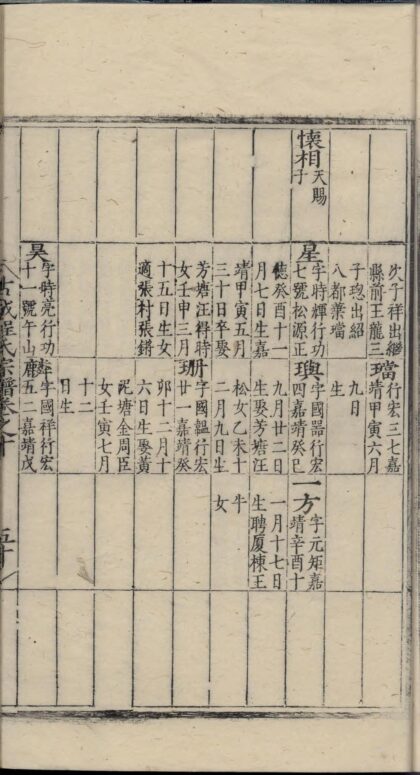 懷相
天賜
子
次子祥出繼
縣前王龍三
子璁出紹
八都葉璫
星
字時輝行功
七號松源正
德癸酉十一
月七日生嘉
靖甲寅五月
三十日卒娶
芳塘汪梓時
女壬申三月
十五日生女
適張村張鏘
昊
字時亮行功
十一號午山
璫
行宏三七嘉
靖甲寅六月
九日
生
璵
字國器行宏
四嘉靖癸巳
九月廿二日
生娶芳塘汪
松女乙未十
二月九日生
珊
字國韞行宏
廿一嘉靖癸
卯十二月十
六日生娶黃
坭塘金周臣
女壬寅七月
十二
日生
字國祥行宏
五二嘉靖戊
一方
字元矩嘉
靖辛酉十
一月十七日
生聘厦棟王
牛
女
古城程氏宗譜卷之十
五十